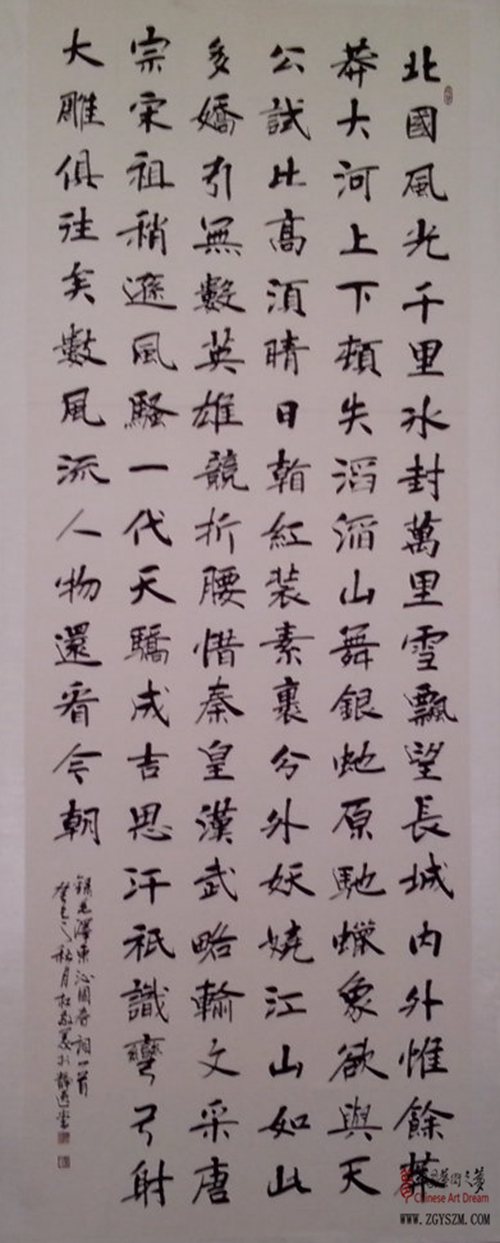 北國風光千里冰封萬里雪飄望長城內外惟餘莽
莽大河上下頓失滔滔山舞銀虵原馳蠟象欲與天
公試比高須晴日看紅装素裹分外妖嬈江山如此
多嬌引無數英雄競折腰惜秦皇漢武略輸文采唐
宗宋祖稍遜風騷一代天驕成吉思汗祇識彎弓射
大雕俱往矣數風流人物還看今朝
錄毛澤東沁園春詞一首
癸巳之秋月
Chinese Art Dream
WWW.ZGYSZM.COM